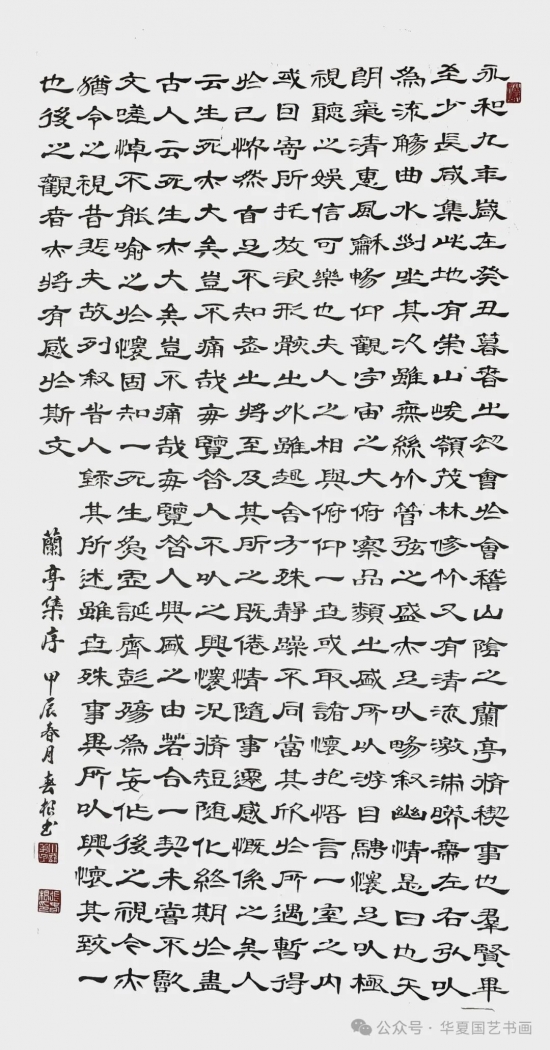 永和九年歲在癸丑暮春之初會於會稽山陰之蘭亭脩禊事也羣賢畢
至少長咸集此地有崇山峻嶺茂林修竹又有清流激湍暎帶左右引以
為流觴曲水列坐其次雖無絲竹管弦之盛亦足以暢敘幽情是日也天
朗氣清惠風龢暢仰觀宇宙之大俯察品類之盛所以游目騁懷足以極
視聽之娛信可樂也夫人之相與俯仰一世或取諸懷抱悟言一室之內
或因寄所托放浪形骸之外雖趣舍万殊靜躁不同當其欣於所遇暫得
於己怏然自足不知老之將至及其所之既倦情隨事遷感慨係之矣人
云生死亦大矣豈不痛哉每覽昔人不以之興懷況脩短隨化終期於盡
古人云死生亦大矣豈不痛哉每覽昔人興感之由若合一契未嘗不臨
文嗟悼不能喻之於懷固知一死生為虛誕齊彭殤為妄作後之視今亦
猶今之視昔悲夫故列敘時人錄其所述雖世殊事異所以興懷其致一
也後之觀者亦將有感於斯文
蘭亭集序 甲辰春月春松书
公众号·华夏国艺书画